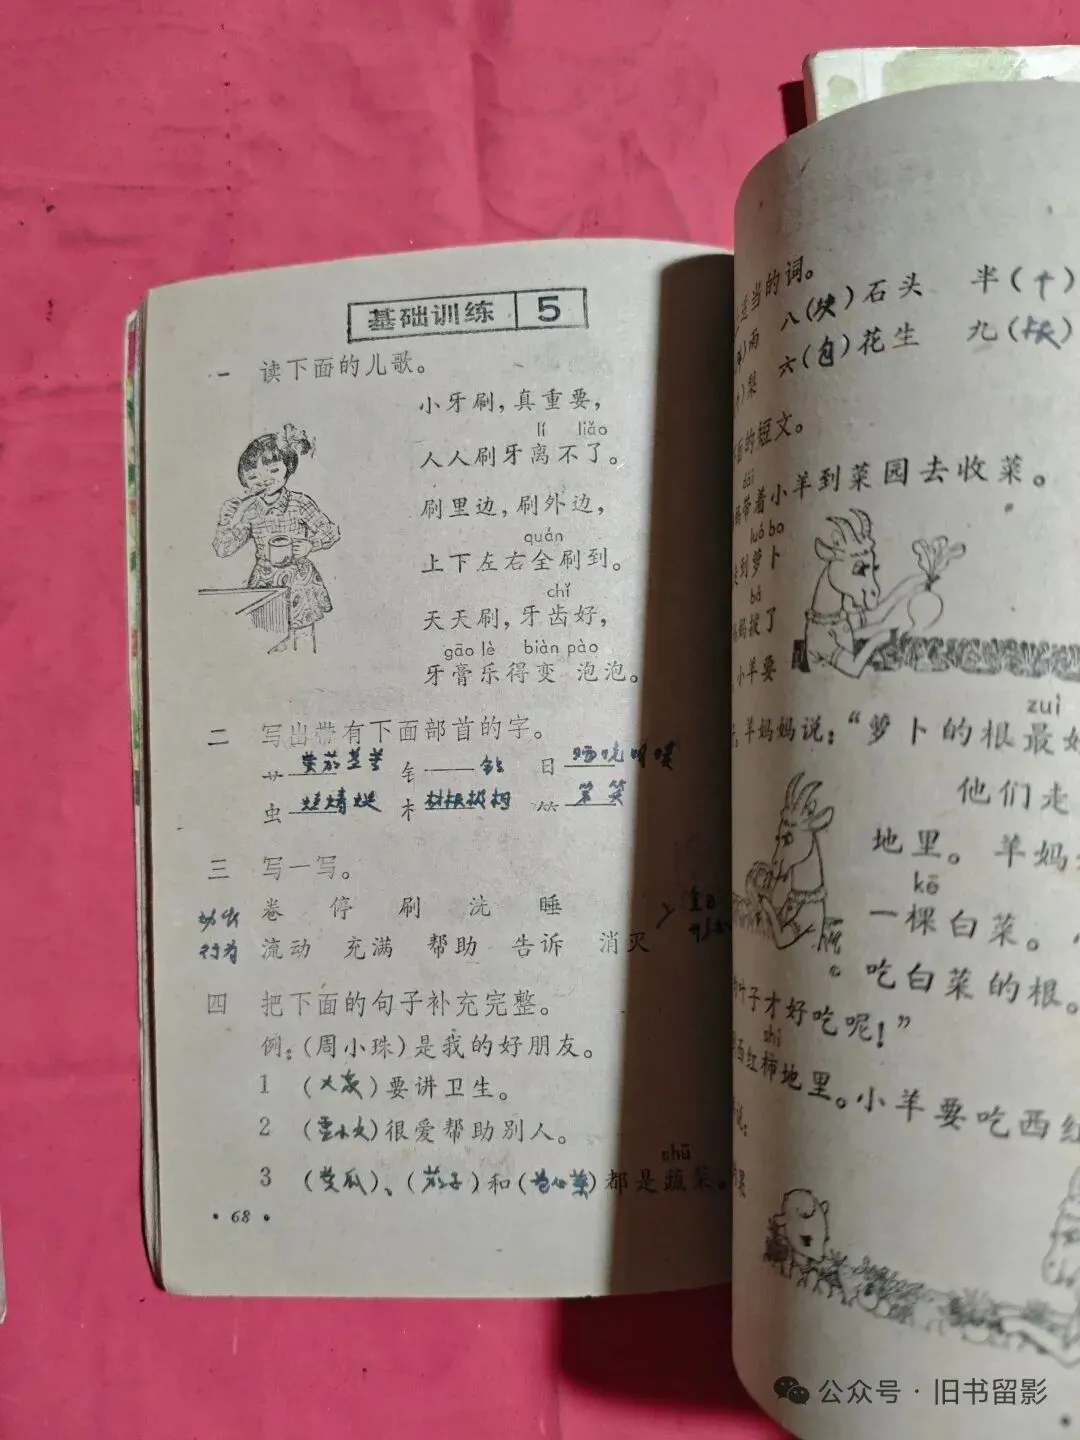 基础训练 5
一 读下面的儿歌。
小牙刷,真重要,
lí liǎo
人人刷牙离不了。
刷里边,刷外边,
quán
上下左右全刷到。
chǐ
天天刷,牙齿好,
gāo lè biàn pào
牙膏乐得变 泡泡。
二 写出带有下面部首的字。
艹 钅 日
虫 木 ⺮
三 写一写。
卷 停 刷 洗 睡
行为 流动 充满 帮助 告诉 消灭
四 把下面的句子补充完整。
例:(周小珠)是我的好朋友。
1 (大家)要讲卫生。
2 ( )很爱帮助别人。
shū
3 (黄瓜)、(茄子)和(卷心菜)都是蔬菜。
• 68 •
适当的词。
八(块)石头 半(个)
雨
六( )花生 九( )
梨
面的短文。
dài
带着小羊到菜园去收菜。
luó bo
到萝卜
bá
妈拔了
小羊要
zuì
羊妈妈说:“萝卜的根最好
他们走
地里。羊妈
kē
一棵白菜。
。吃白菜的根。
叶子才好吃呢!”
shì
西红柿地里。小羊要吃西红
公众号·旧书留影